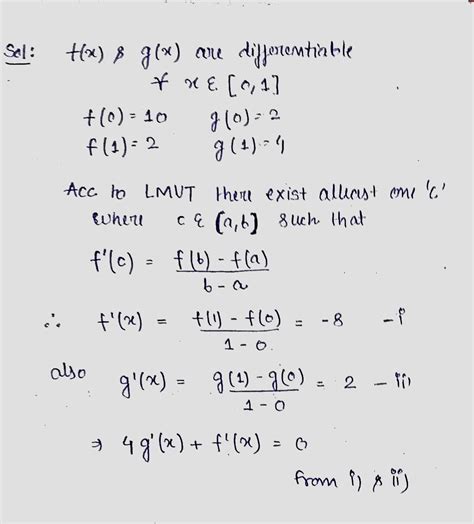 Sol: f(x) & g(x) are differentiable
∀ x ε [0,1]
f(0) = 10 g(0) = 2
f(1) = 2 g(1) = 4
Acc to LMVT there exist atleast one 'c'
where c ε [a,b] such that
f'(c) = f(b) - f(a) / b - a
∴ f'(x) = f(1) - f(0) / 1 - 0 = -8 - i
also g'(x) = g(1) - g(0) / 1 - 0 = 2 - ii)
⇒ 4g'(x) + f'(x) = 0
from i) & ii)